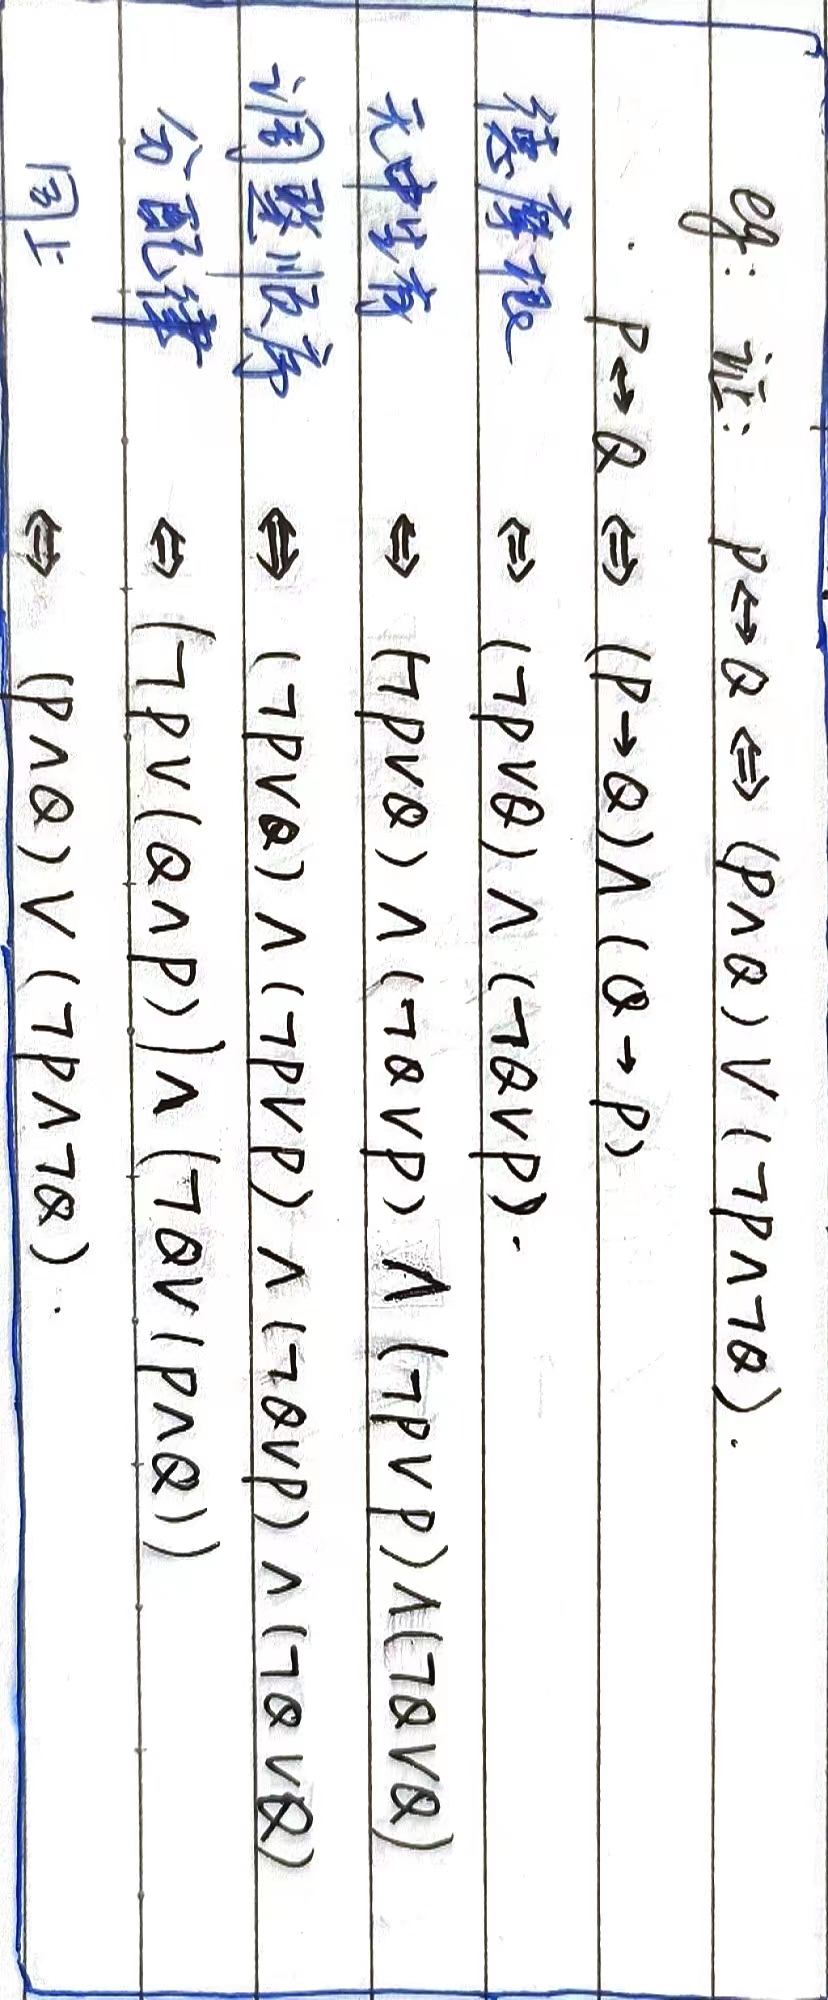 eg: 证: P↔Q ⇔ (P∧Q)∨(¬P∧¬Q).
P↔Q ⇔ (P→Q)∧(Q→P)
德摩根 ⇔ (¬P∨Q)∧(¬Q∨P).
无中生有 ⇔ (¬P∨Q)∧(¬Q∨P)∧(¬P∨P)∧(¬Q∨Q)
调整顺序 ⇔ (¬P∨Q)∧(¬P∨P)∧(¬Q∨P)∧(¬Q∨Q)
分配律 ⇔ (¬P∨(Q∧P))∧(¬Q∨(P∧Q))
同上 ⇔ (P∧Q)∨(¬P∧¬Q).